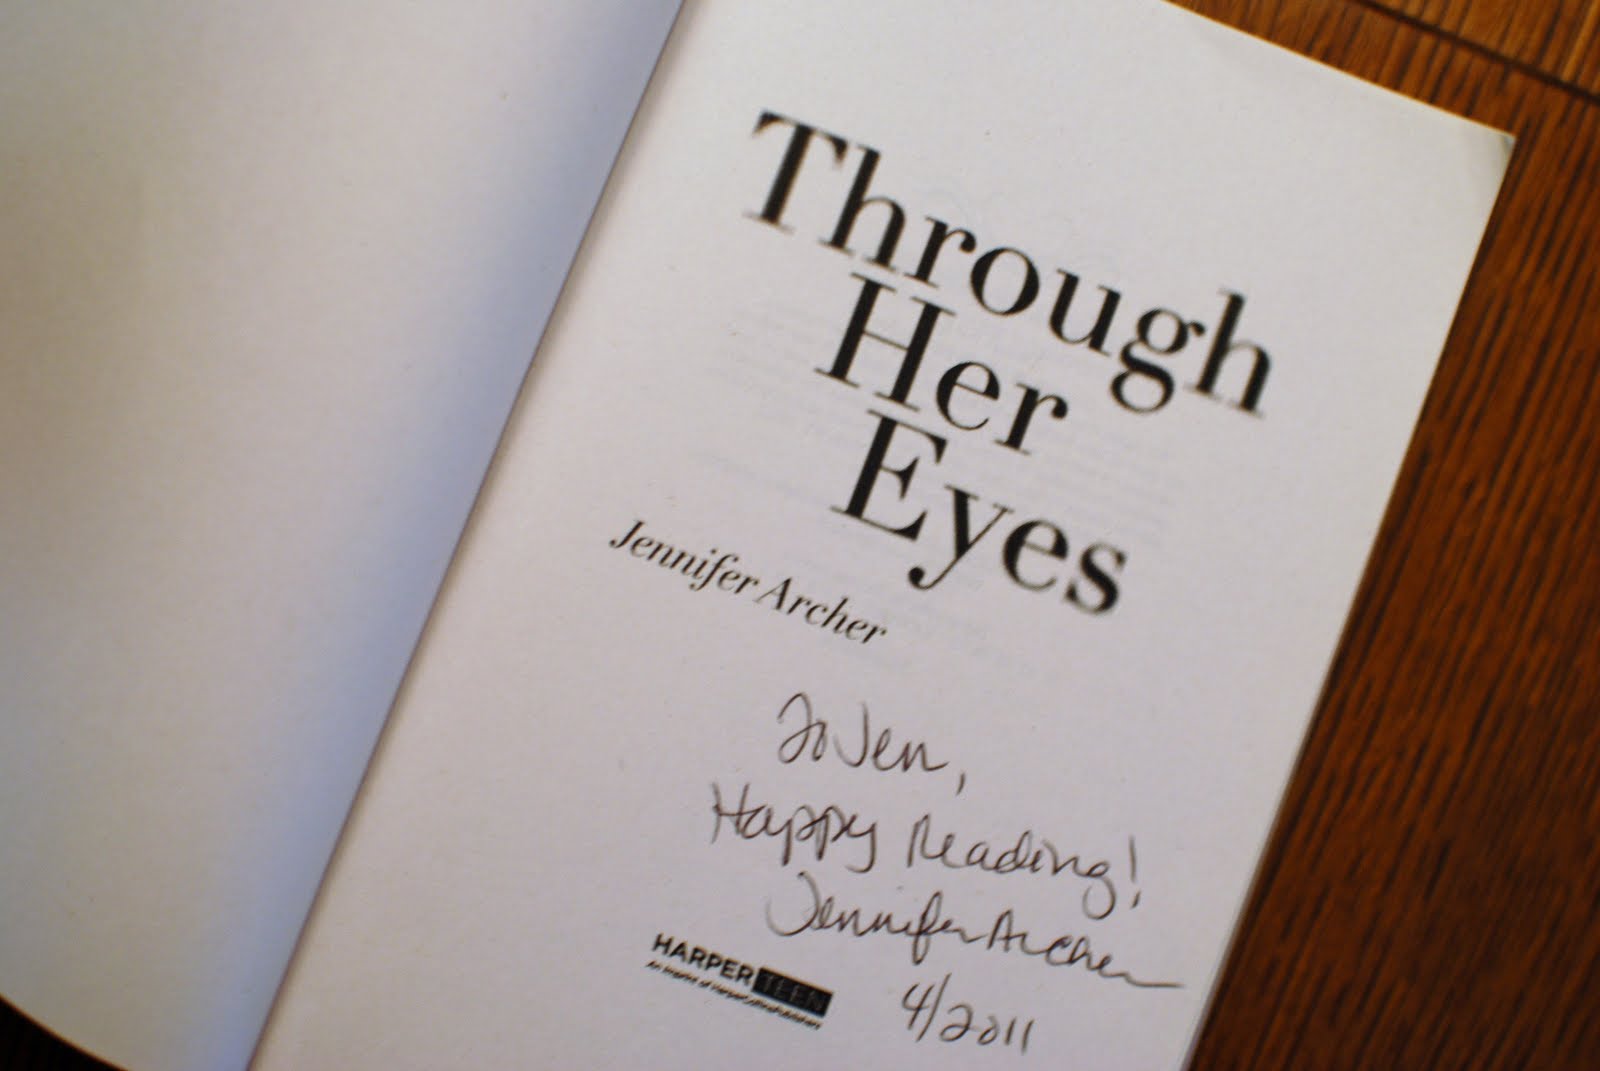 Through
Her
Eyes
Jennifer Archer
To Jen,
Happy Reading!
Jennifer Archer
HARPER TEEN
An Imprint of HarperCollinsPublishers
4/2011